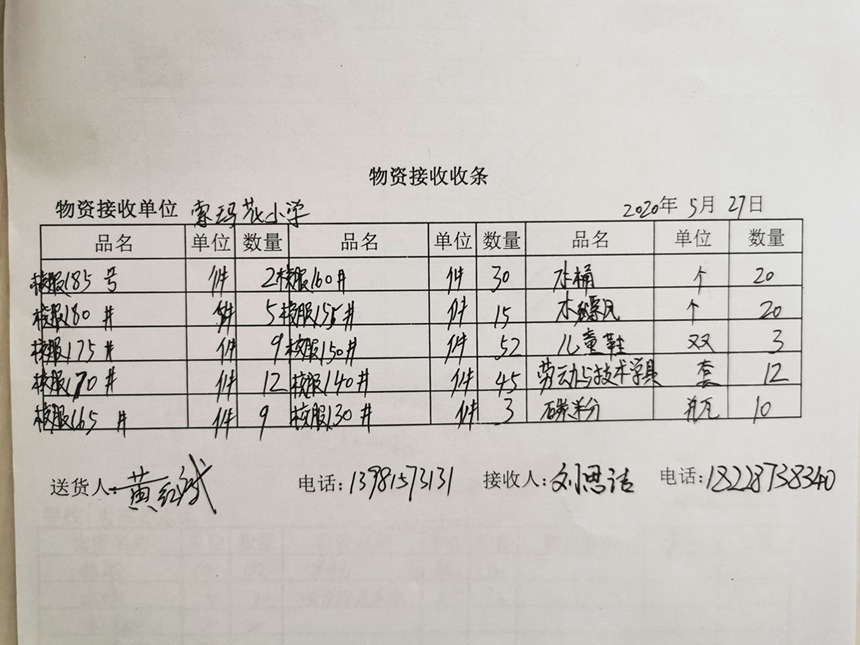 物资接收收条
物资接收单位 索玛花小学 2020年5月27日
品名 单位 数量 品名 单位 数量 品名 单位 数量
校服185号 件 2 校服160# 件 30 水桶 个 20
校服180# 件 5 校服155# 件 15 水瓢 个 20
校服175# 件 9 校服150# 件 52 儿童鞋 双 3
校服170# 件 12 校服140# 件 45 劳动与技术学具 套 12
校服165# 件 9 校服130# 件 3 瓶 10
送货人: 黄红斌 电话:13981573131 接收人:刘思洁 电话:18228738340